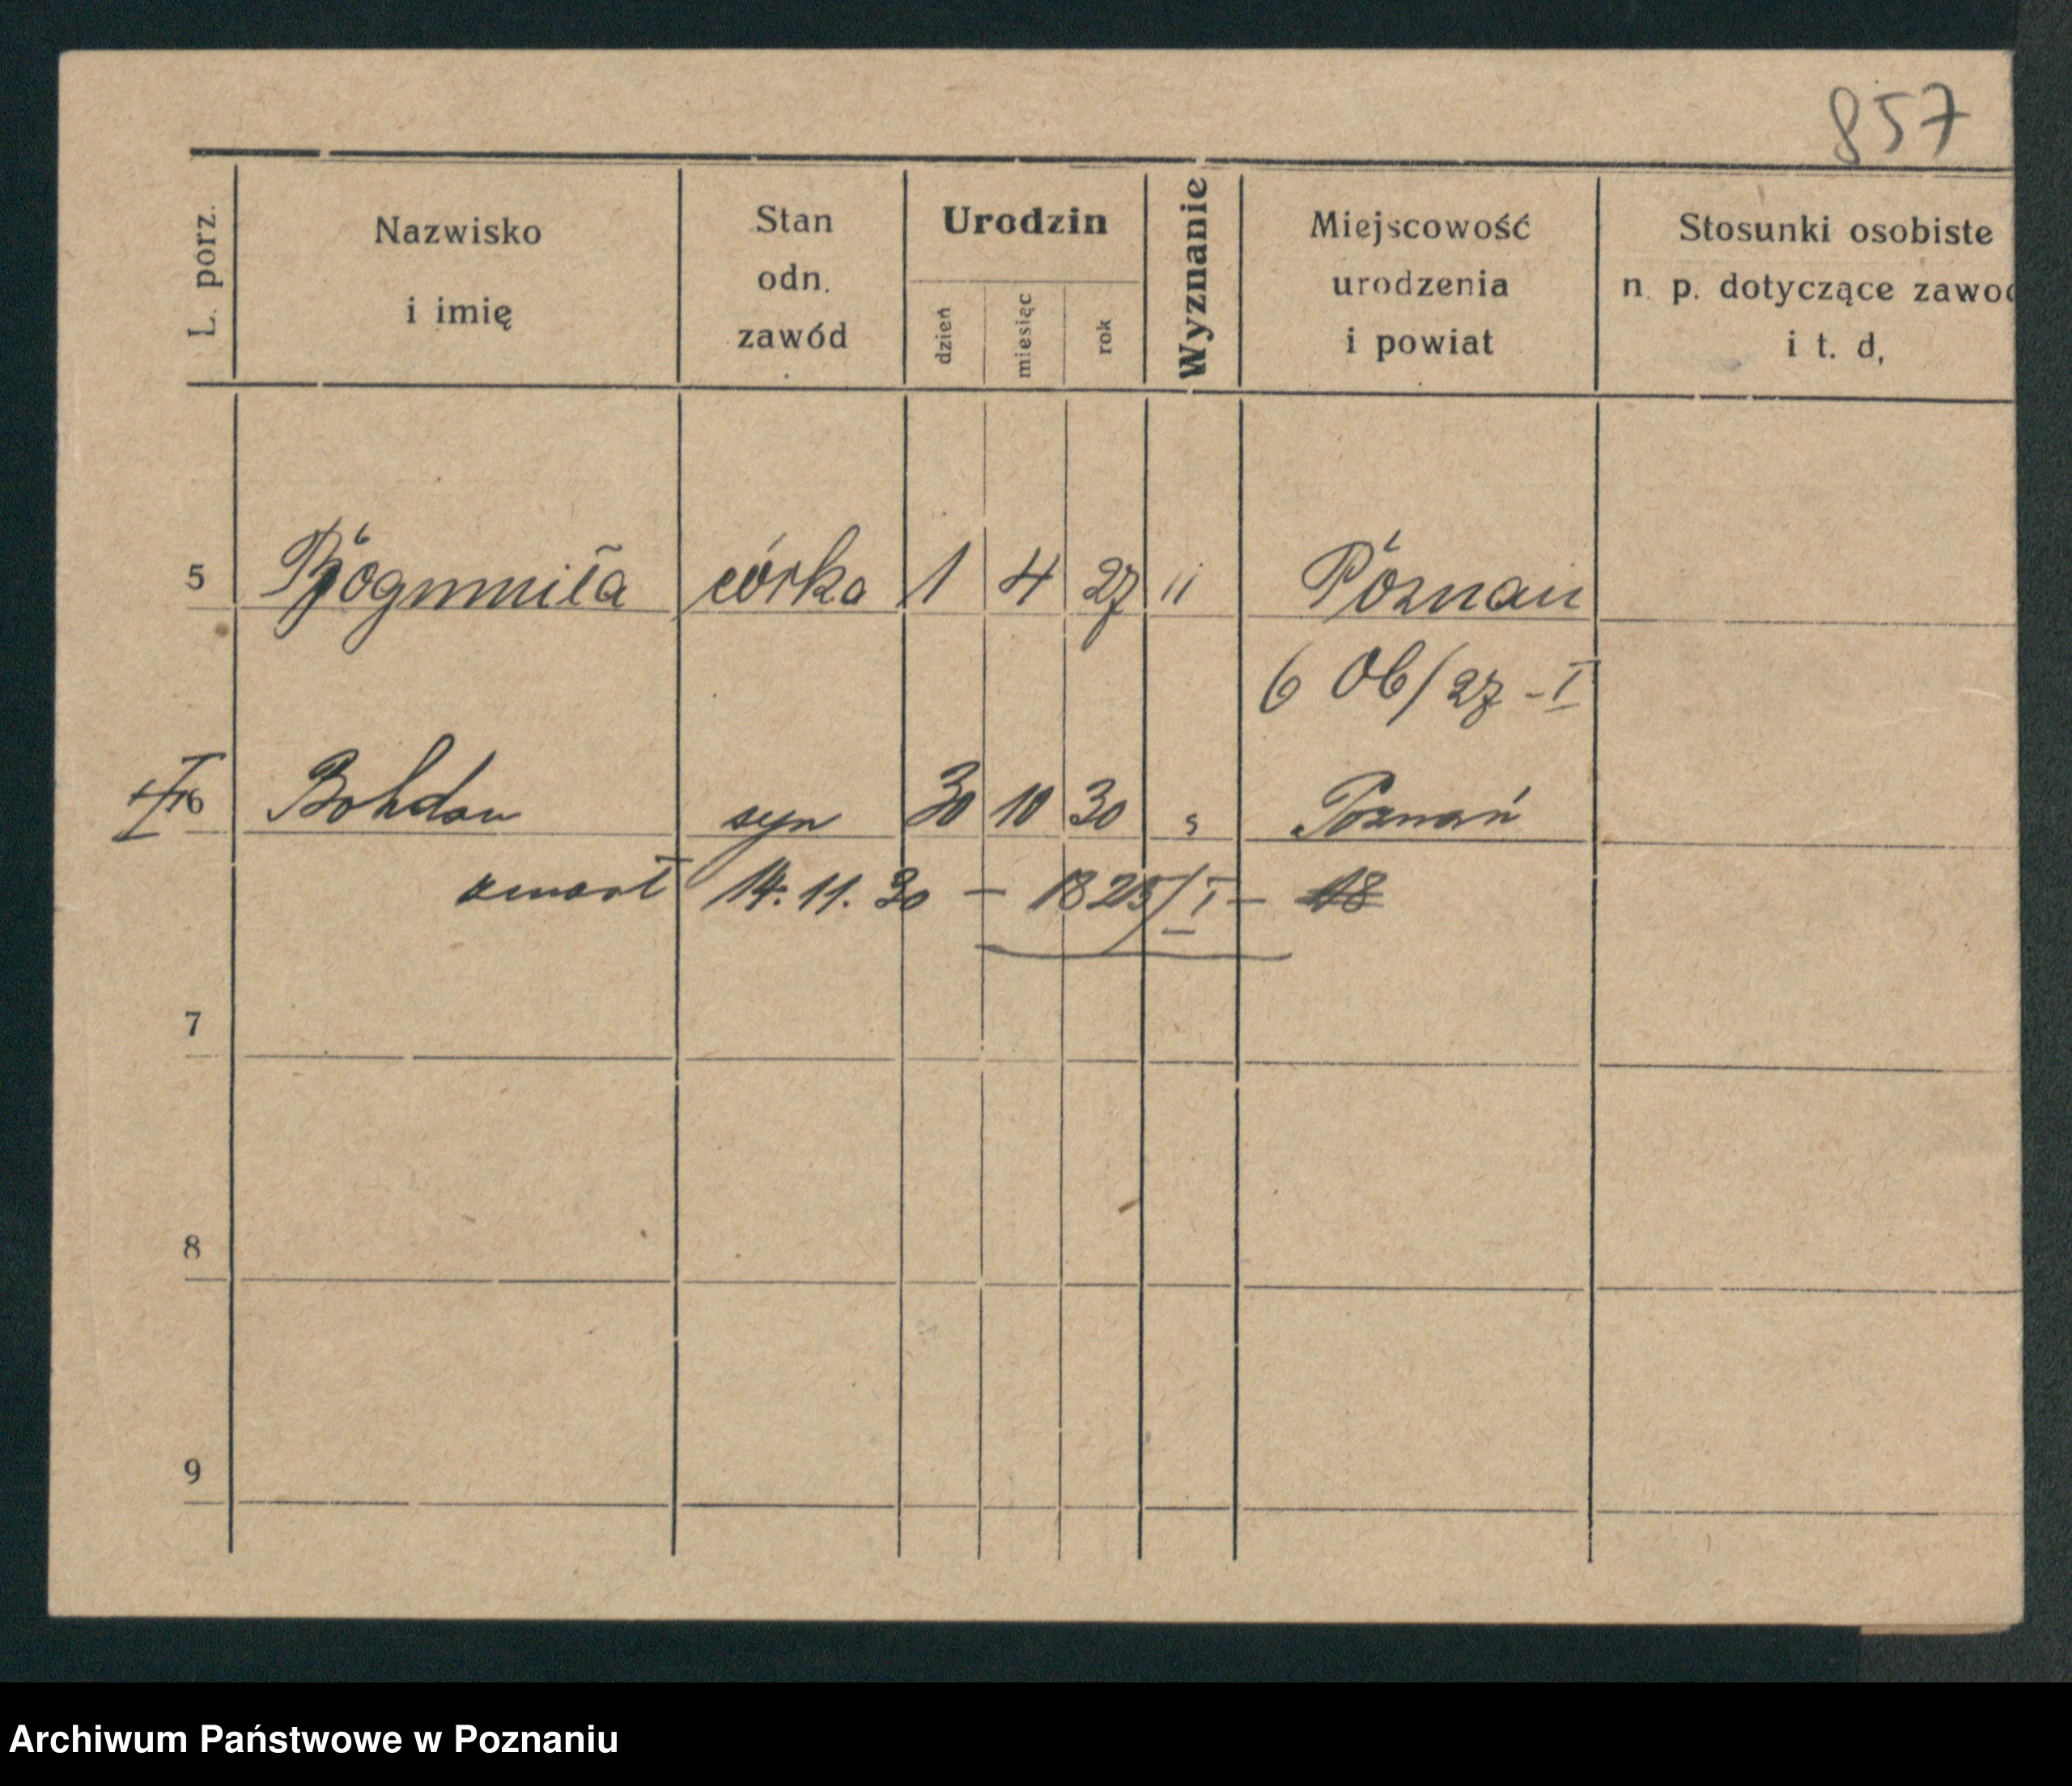 857
L. porz.
Nazwisko
i imię
Stan
odn.
zawód
Urodzin
dzień
miesięc
rok
Wyznanie
Miejscowość
urodzenia
i powiat
Stosunki osobiste
n. p. dotyczące zawod
i t. d,
5 Bogumiła córka 1 4 27 " Poznań
6 Ob/27 - I
6 Bohdan syn 30 10 30 " Poznań
zmarł 14. 11. 30 - 1825/I - 18
7
8
9
Archiwum Państwowe w Poznaniu